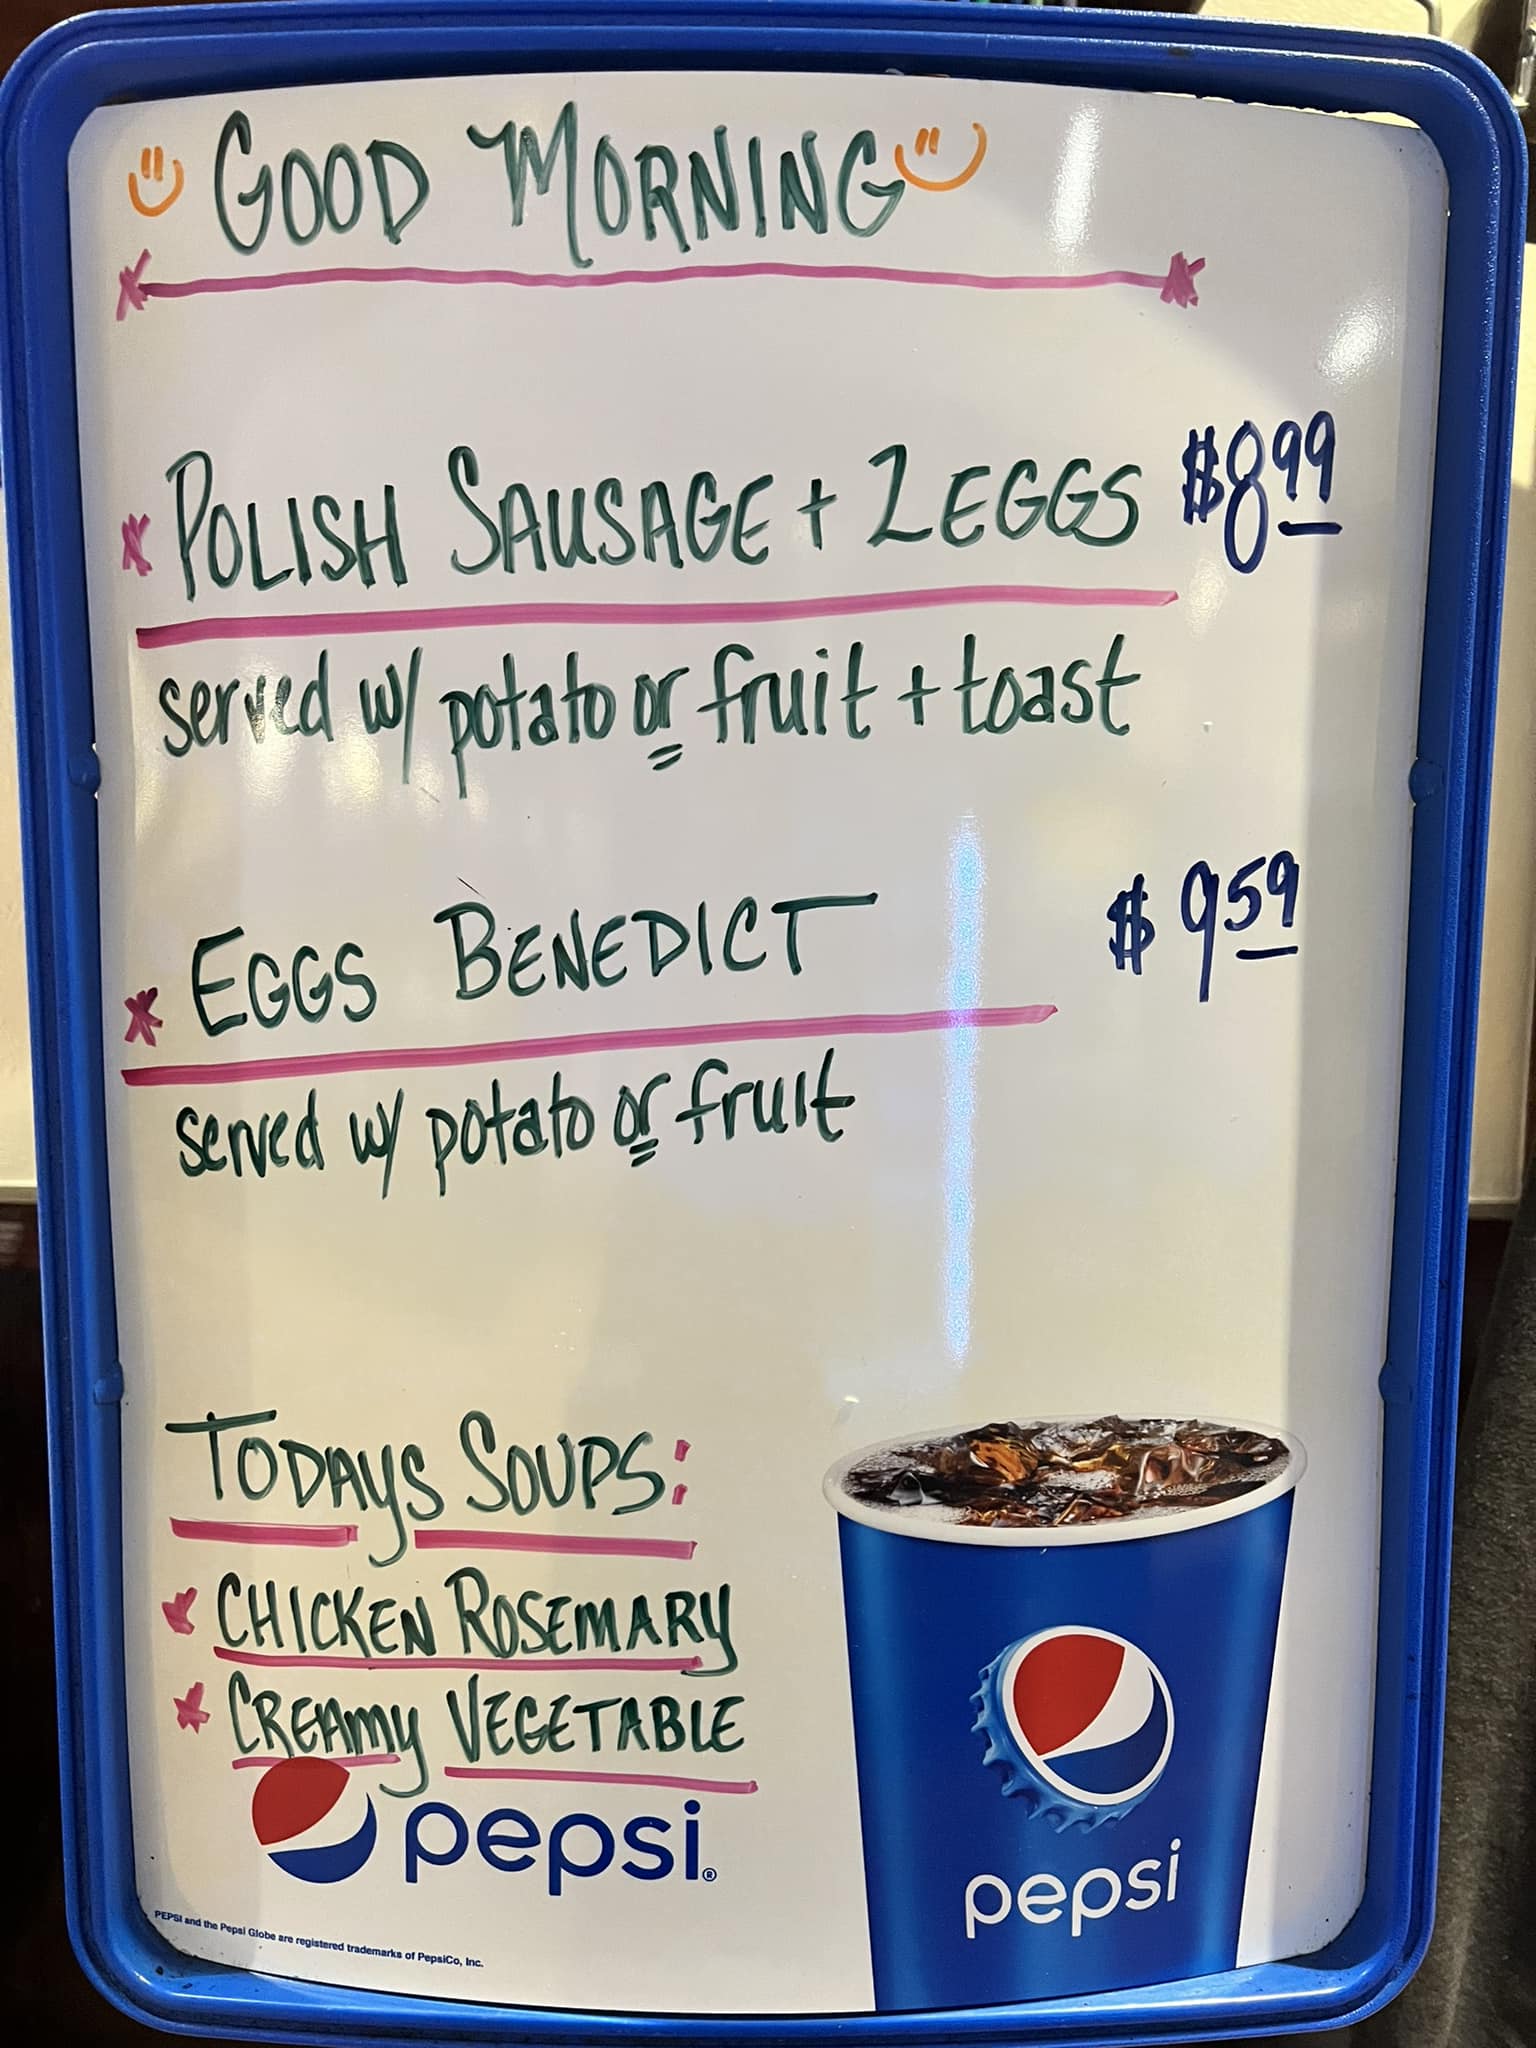 GOOD MORNING
POLISH SAUSAGE + 2 EGGS $8.99
served w/ potato or fruit + toast
EGGS BENEDICT $9.59
served w/ potato or fruit
TODAYS SOUPS:
CHICKEN ROSEMARY
CREAMY VEGETABLE
pepsi®
pepsi
PEPSI and the Pepsi Globe are registered trademarks of PepsiCo, Inc.